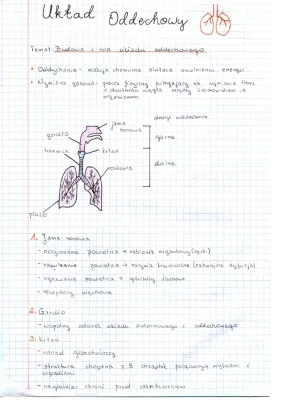 Układ Oddechowy
Temat: Budowa i rola układu oddechowego.
• Oddychanie - reakcja chemiczna służąca uwolnieniu energii
• Wymiana gazowa - proces fizyczny polegający na wymianie tlenu
i dwutlenku węgla między środowiskiem a
organizmem.
drogi oddechowe
jama
nosowa
gardło
górne
tchawica
krtań
dolne
oskrzela
płuco
1. Jama nosowa
- oczyszczanie powietrza →
- nawilżanie powietrza →
- ogrzewanie powietrza →
- receptory węchowe
2. Gardło
- wspólny odcinek układu pokarmowego i oddechowego
3. Krtań
- narząd głosotwórczy
- struktura złożona z chrząstek połączonych mięśniami i
więzadłami
- nagłośnia: chroni przed